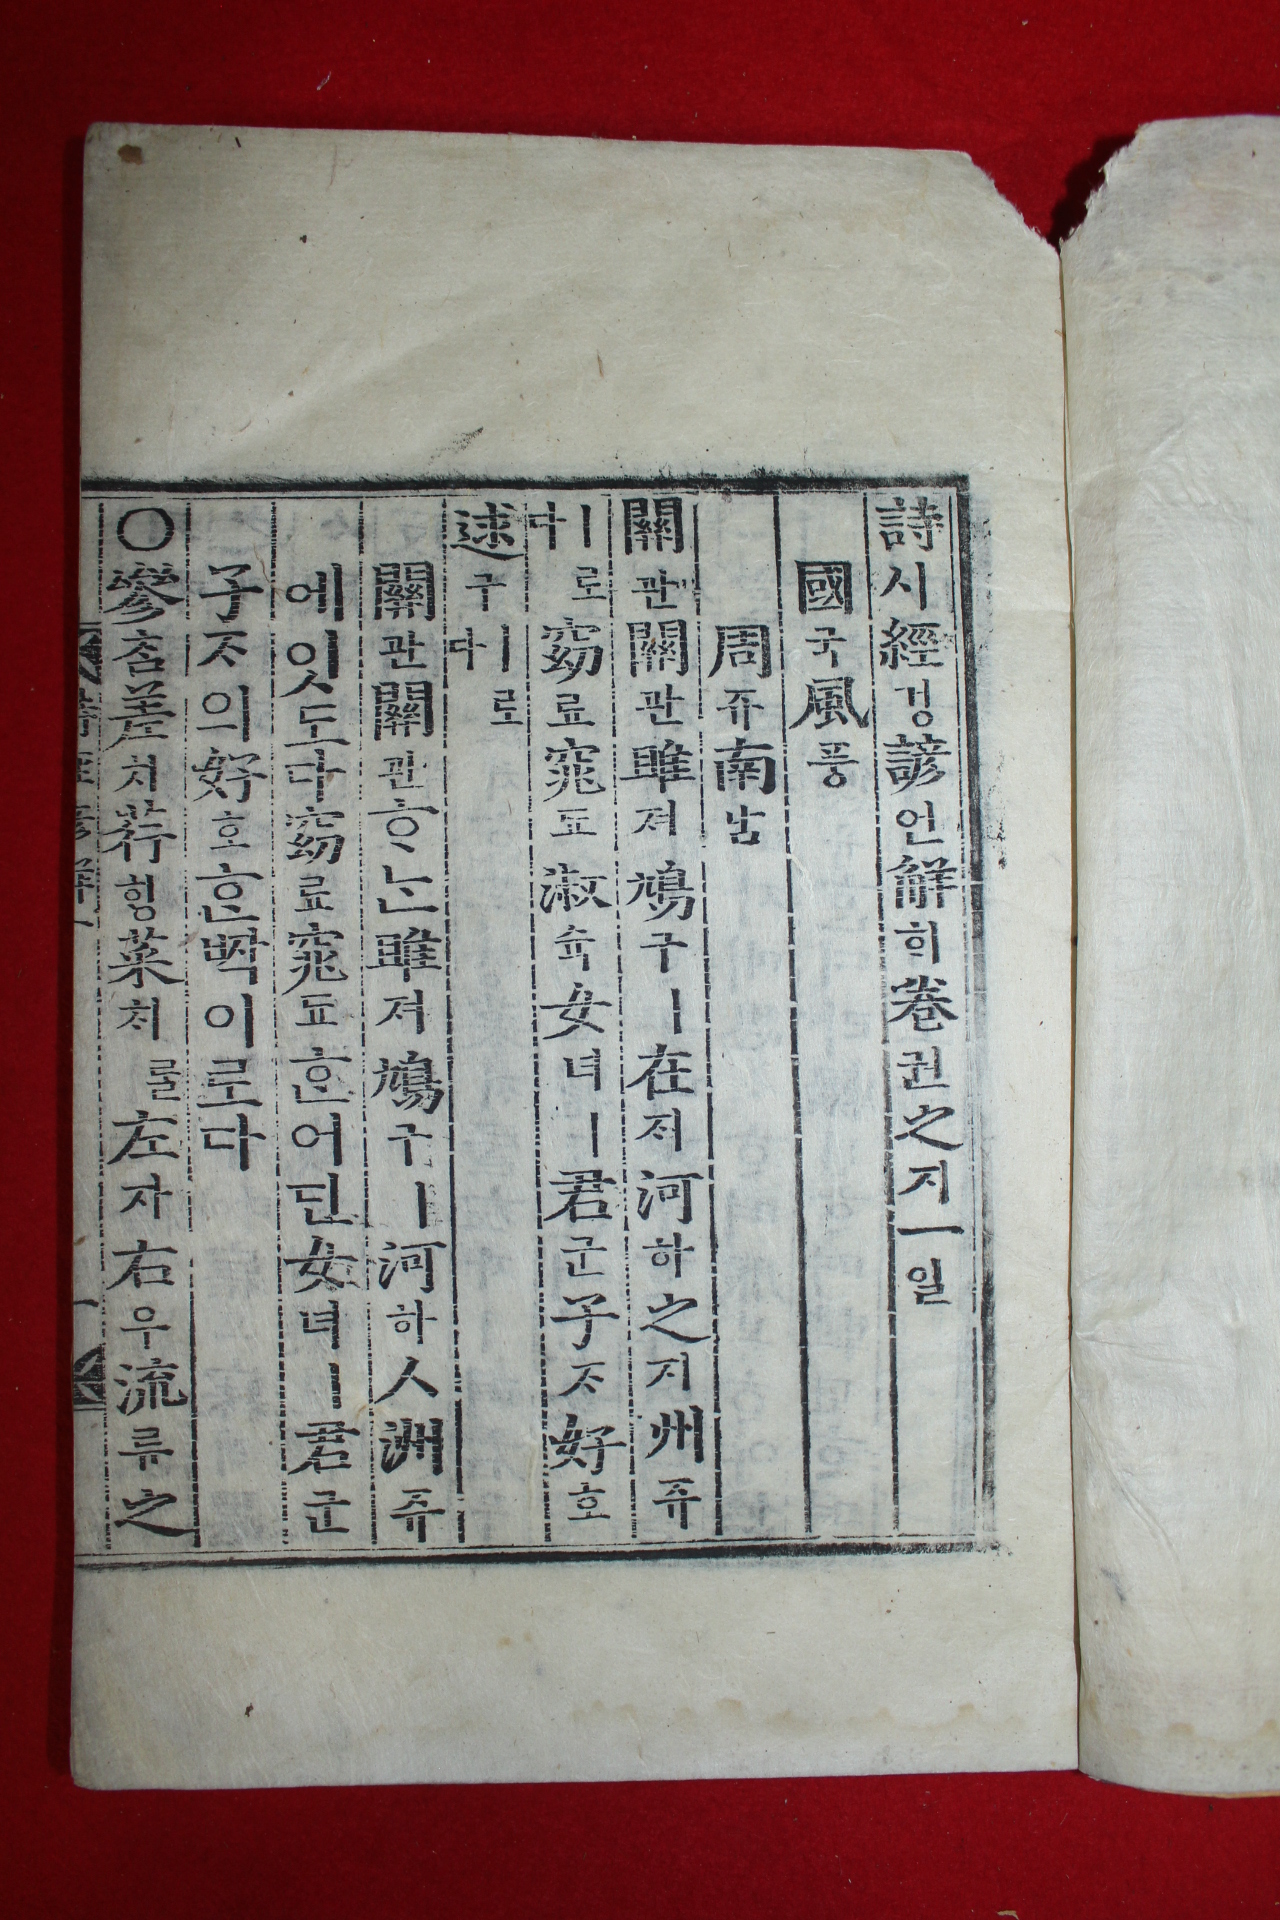 詩시經경諺언解ᄒᆡ卷권之지一일
國국風풍
周쥬南남
關관關관雎져鳩구ㅣ在ᄌᆡ河하之지州쥬
ㅣ로다窈료窕됴淑슉女녀ㅣ君군子ᄌᆞ好호
逑구ㅣ로다
關관關관ᄒᆞᄂᆞᆫ雎져鳩구ㅣ河하ㅅ洲쥬
에잇도다窈료窕됴ᄒᆞᆫ어딘女녀ㅣ君군
子ᄌᆞ의好호ᄒᆞᆫᄧᅡᆨ이로다
○參ᄎᆞᆷ差치荇ᄒᆡᆼ菜ᄎᆡ를左자右우流류之